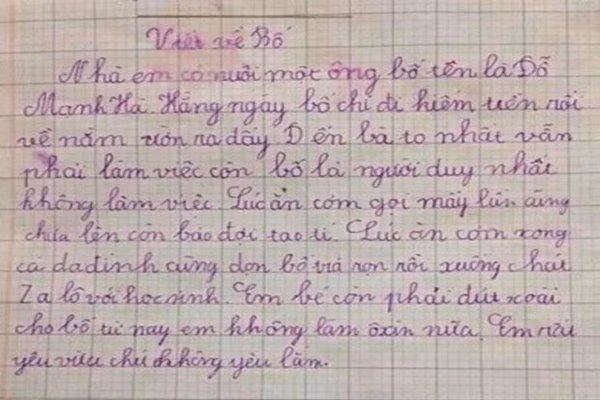 Viết về Bố
Nhà em có nuôi một ông bố tên là Đỗ
Mạnh Hà. Hằng ngày bố chỉ đi kiếm tiền rồi
về nằm ườn ra đấy. Đến bà to nhất vẫn
phải làm việc còn bố là người duy nhất
không làm việc. Lúc ăn cơm gọi mấy lần cũng
chưa lên còn bảo đợi tao tí. Lúc ăn cơm xong
cả da đình cùng dọn bố vừa rọn rồi xuống chát
Za lô với học sinh. Em bé còn phải đưu xoài
cho bố từ nay em không làm ôxin nữa. Em rất
yêu vừa chứ không yêu lắm.